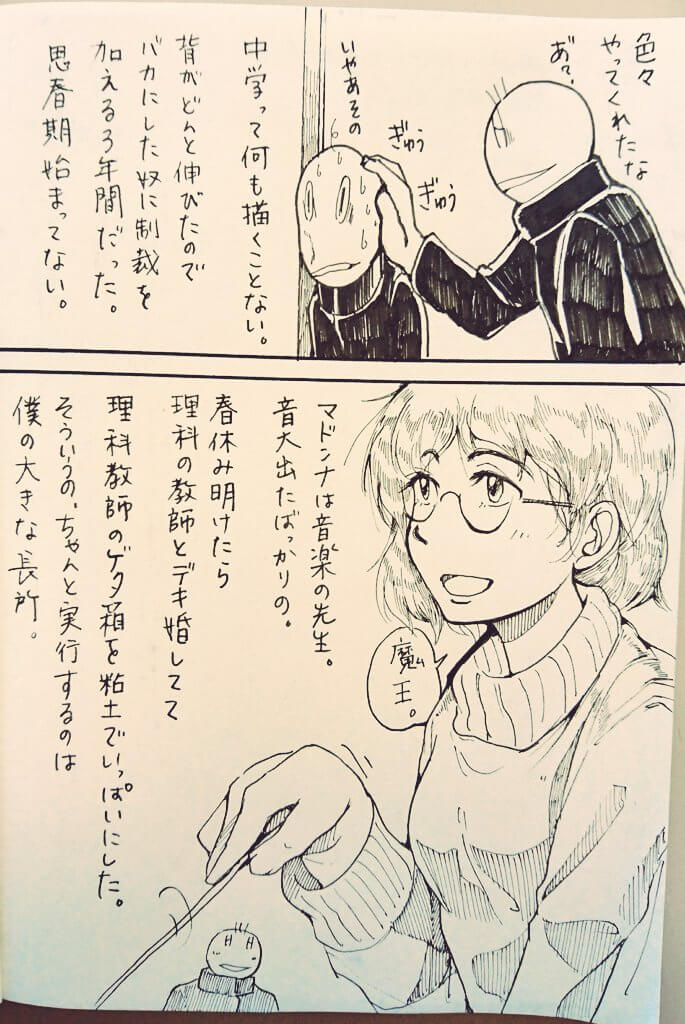 色々
やってくれたな
あ?
ぎゅう
ぎゅう
いやあその
中学って何も描くことない。
背がどんと伸びたので
バカにした奴に制裁を
加える3年間だった。
思春期始まってない。
マドンナは音楽の先生。
音大出たばっかりの。
魔王。
春休み明けたら
理科の教師とデキ婚してて
理科教師のゲタ箱を粘土でいっぱいにした。
そういうの、ちゃんと実行するのは
僕の大きな長所。